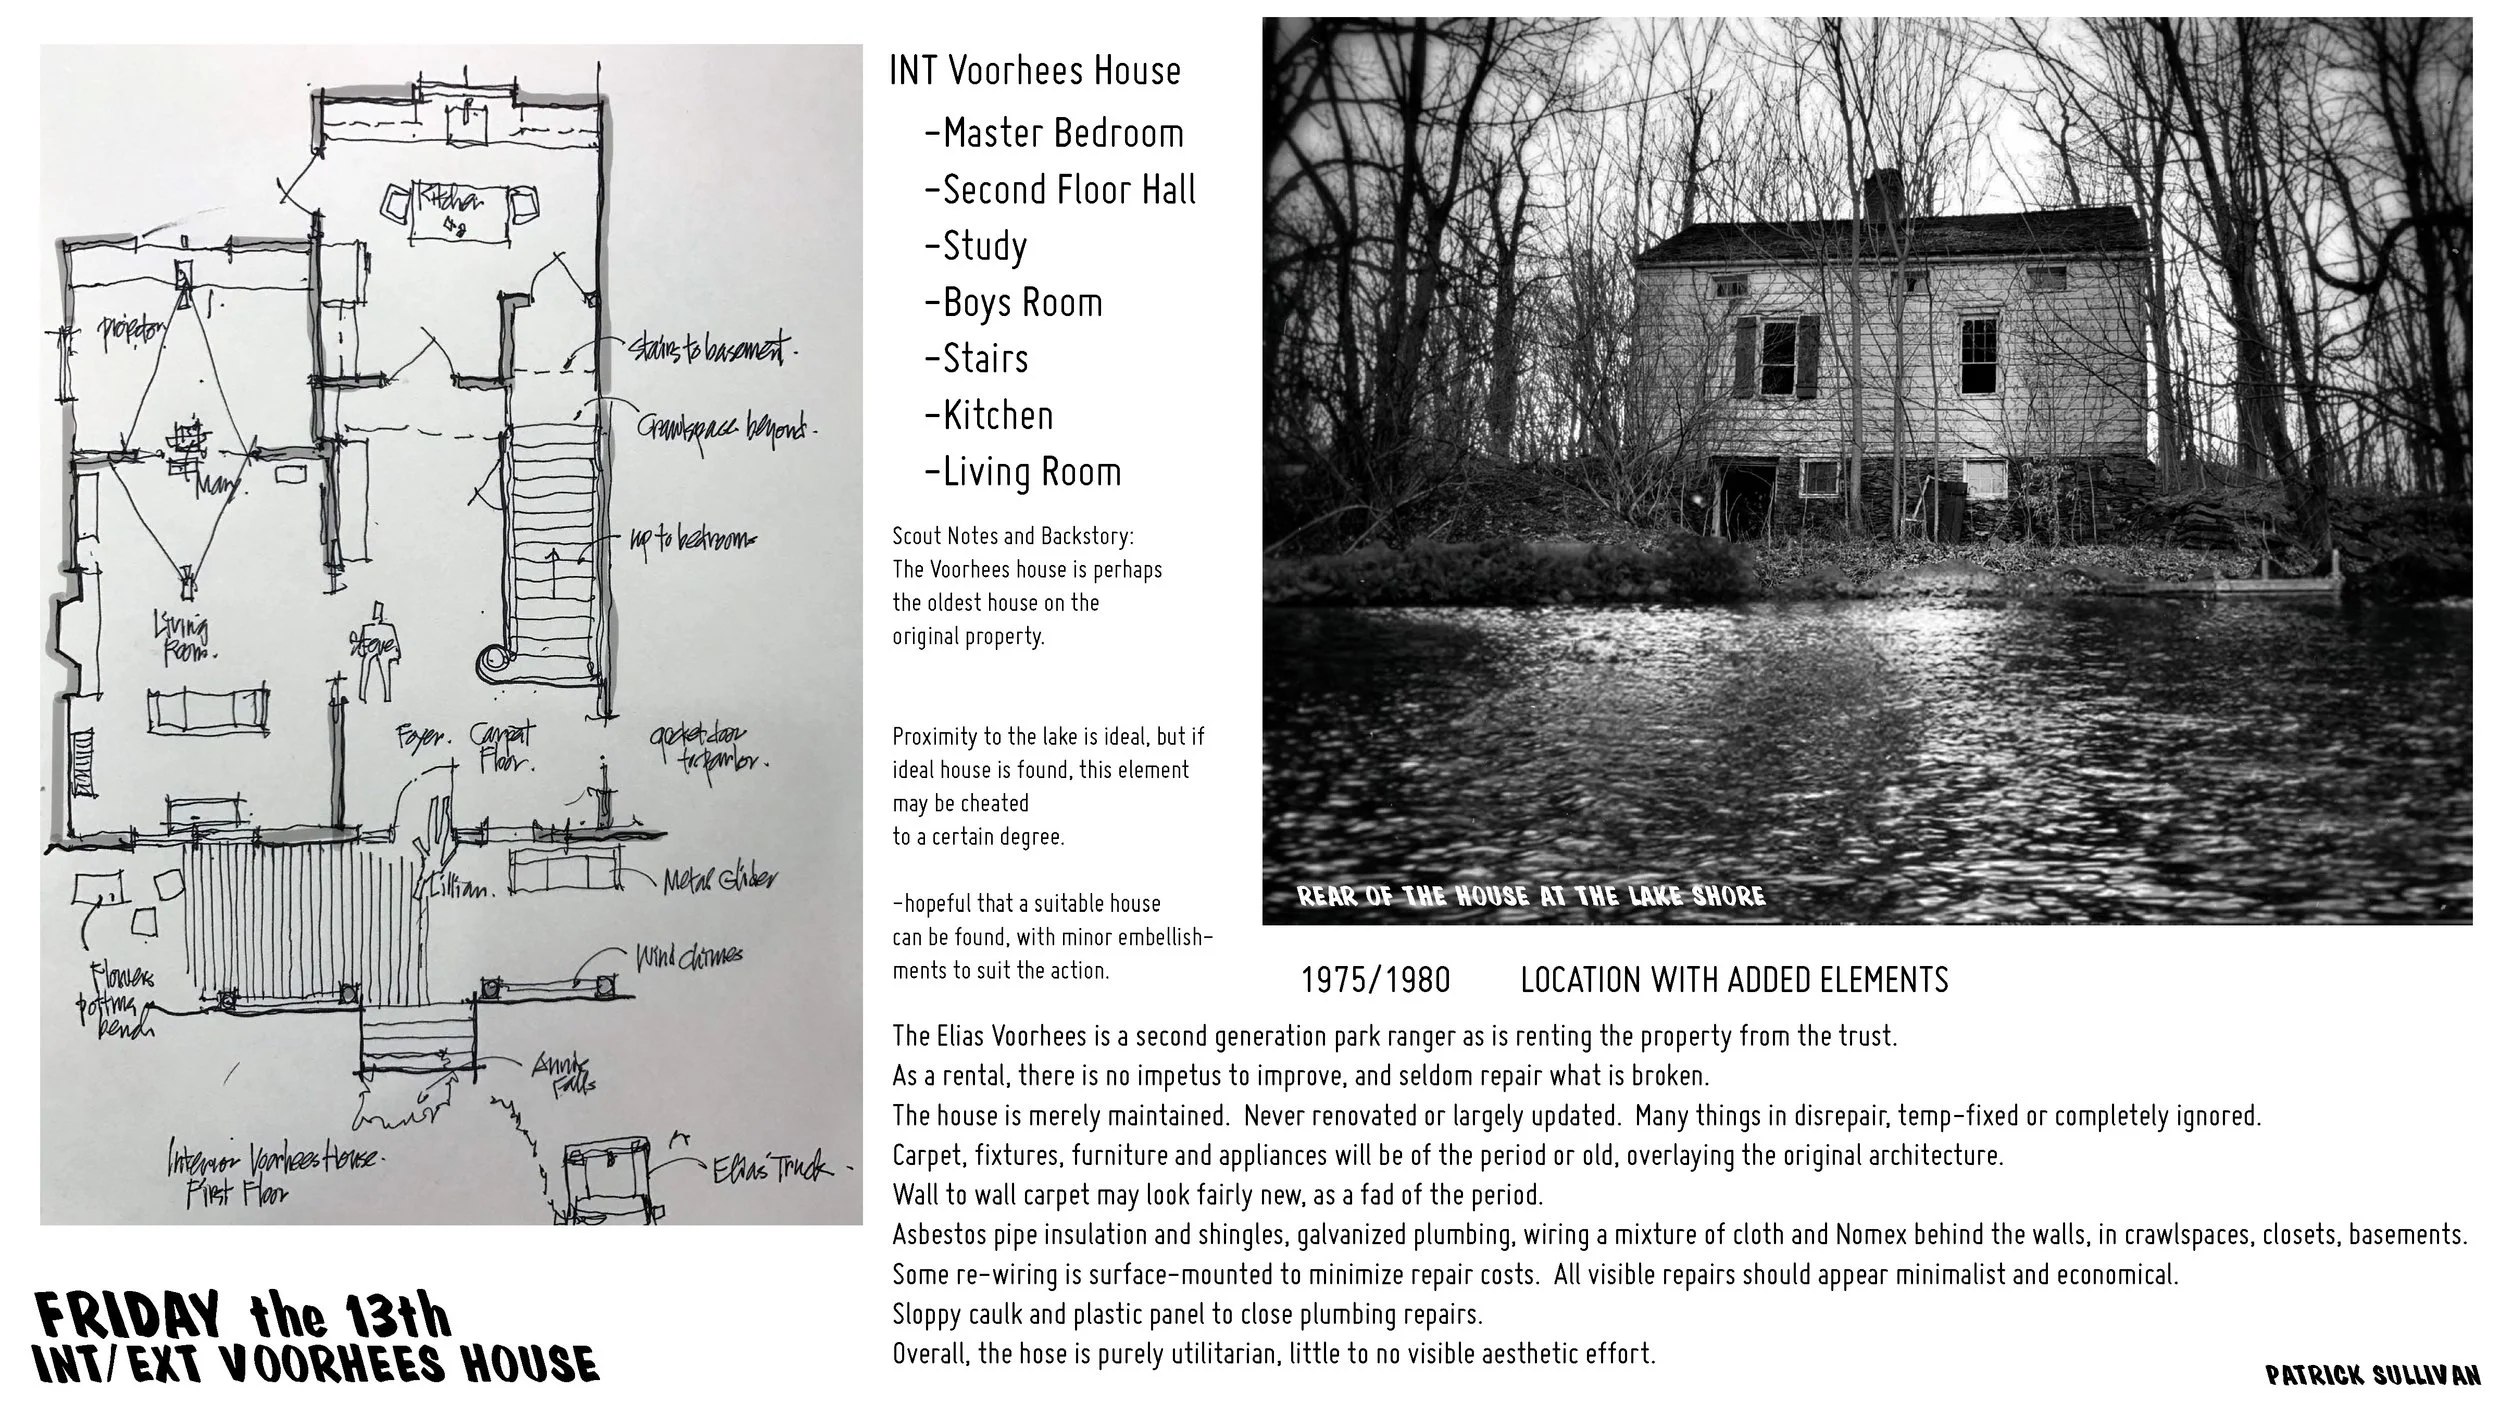 Kitchen
projector
stairs to basement.
Crawlspace beyond.
Mary.
up to bedrooms
Living
Room.
Steve
Foyer.
Carpet
Floor.
pocket door
to parlor.
Lillian.
Metal Glider
Wind chimes
Flowers
potting
bench
Annie
Falls
Interior Voorhees House.
First Floor
Elias' Truck
FRIDAY the 13th
INT/EXT VOORHEES HOUSE
INT Voorhees House
-Master Bedroom
-Second Floor Hall
-Study
-Boys Room
-Stairs
-Kitchen
-Living Room
Scout Notes and Backstory:
The Voorhees house is perhaps
the oldest house on the
original property.
Proximity to the lake is ideal, but if
ideal house is found, this element
may be cheated
to a certain degree.
-hopeful that a suitable house
can be found, with minor embellish-
ments to suit the action.
REAR OF THE HOUSE AT THE LAKE SHORE
1975/1980 LOCATION WITH ADDED ELEMENTS
The Elias Voorhees is a second generation park ranger as is renting the property from the trust.
As a rental, there is no impetus to improve, and seldom repair what is broken.
The house is merely maintained. Never renovated or largely updated. Many things in disrepair, temp-fixed or completely ignored.
Carpet, fixtures, furniture and appliances will be of the period or old, overlaying the original architecture.
Wall to wall carpet may look fairly new, as a fad of the period.
Asbestos pipe insulation and shingles, galvanized plumbing, wiring a mixture of cloth and Nomex behind the walls, in crawlspaces, closets, basements.
Some re-wiring is surface-mounted to minimize repair costs. All visible repairs should appear minimalist and economical.
Sloppy caulk and plastic panel to close plumbing repairs.
Overall, the hose is purely utilitarian, little to no visible aesthetic effort.
PATRICK SULLIVAN